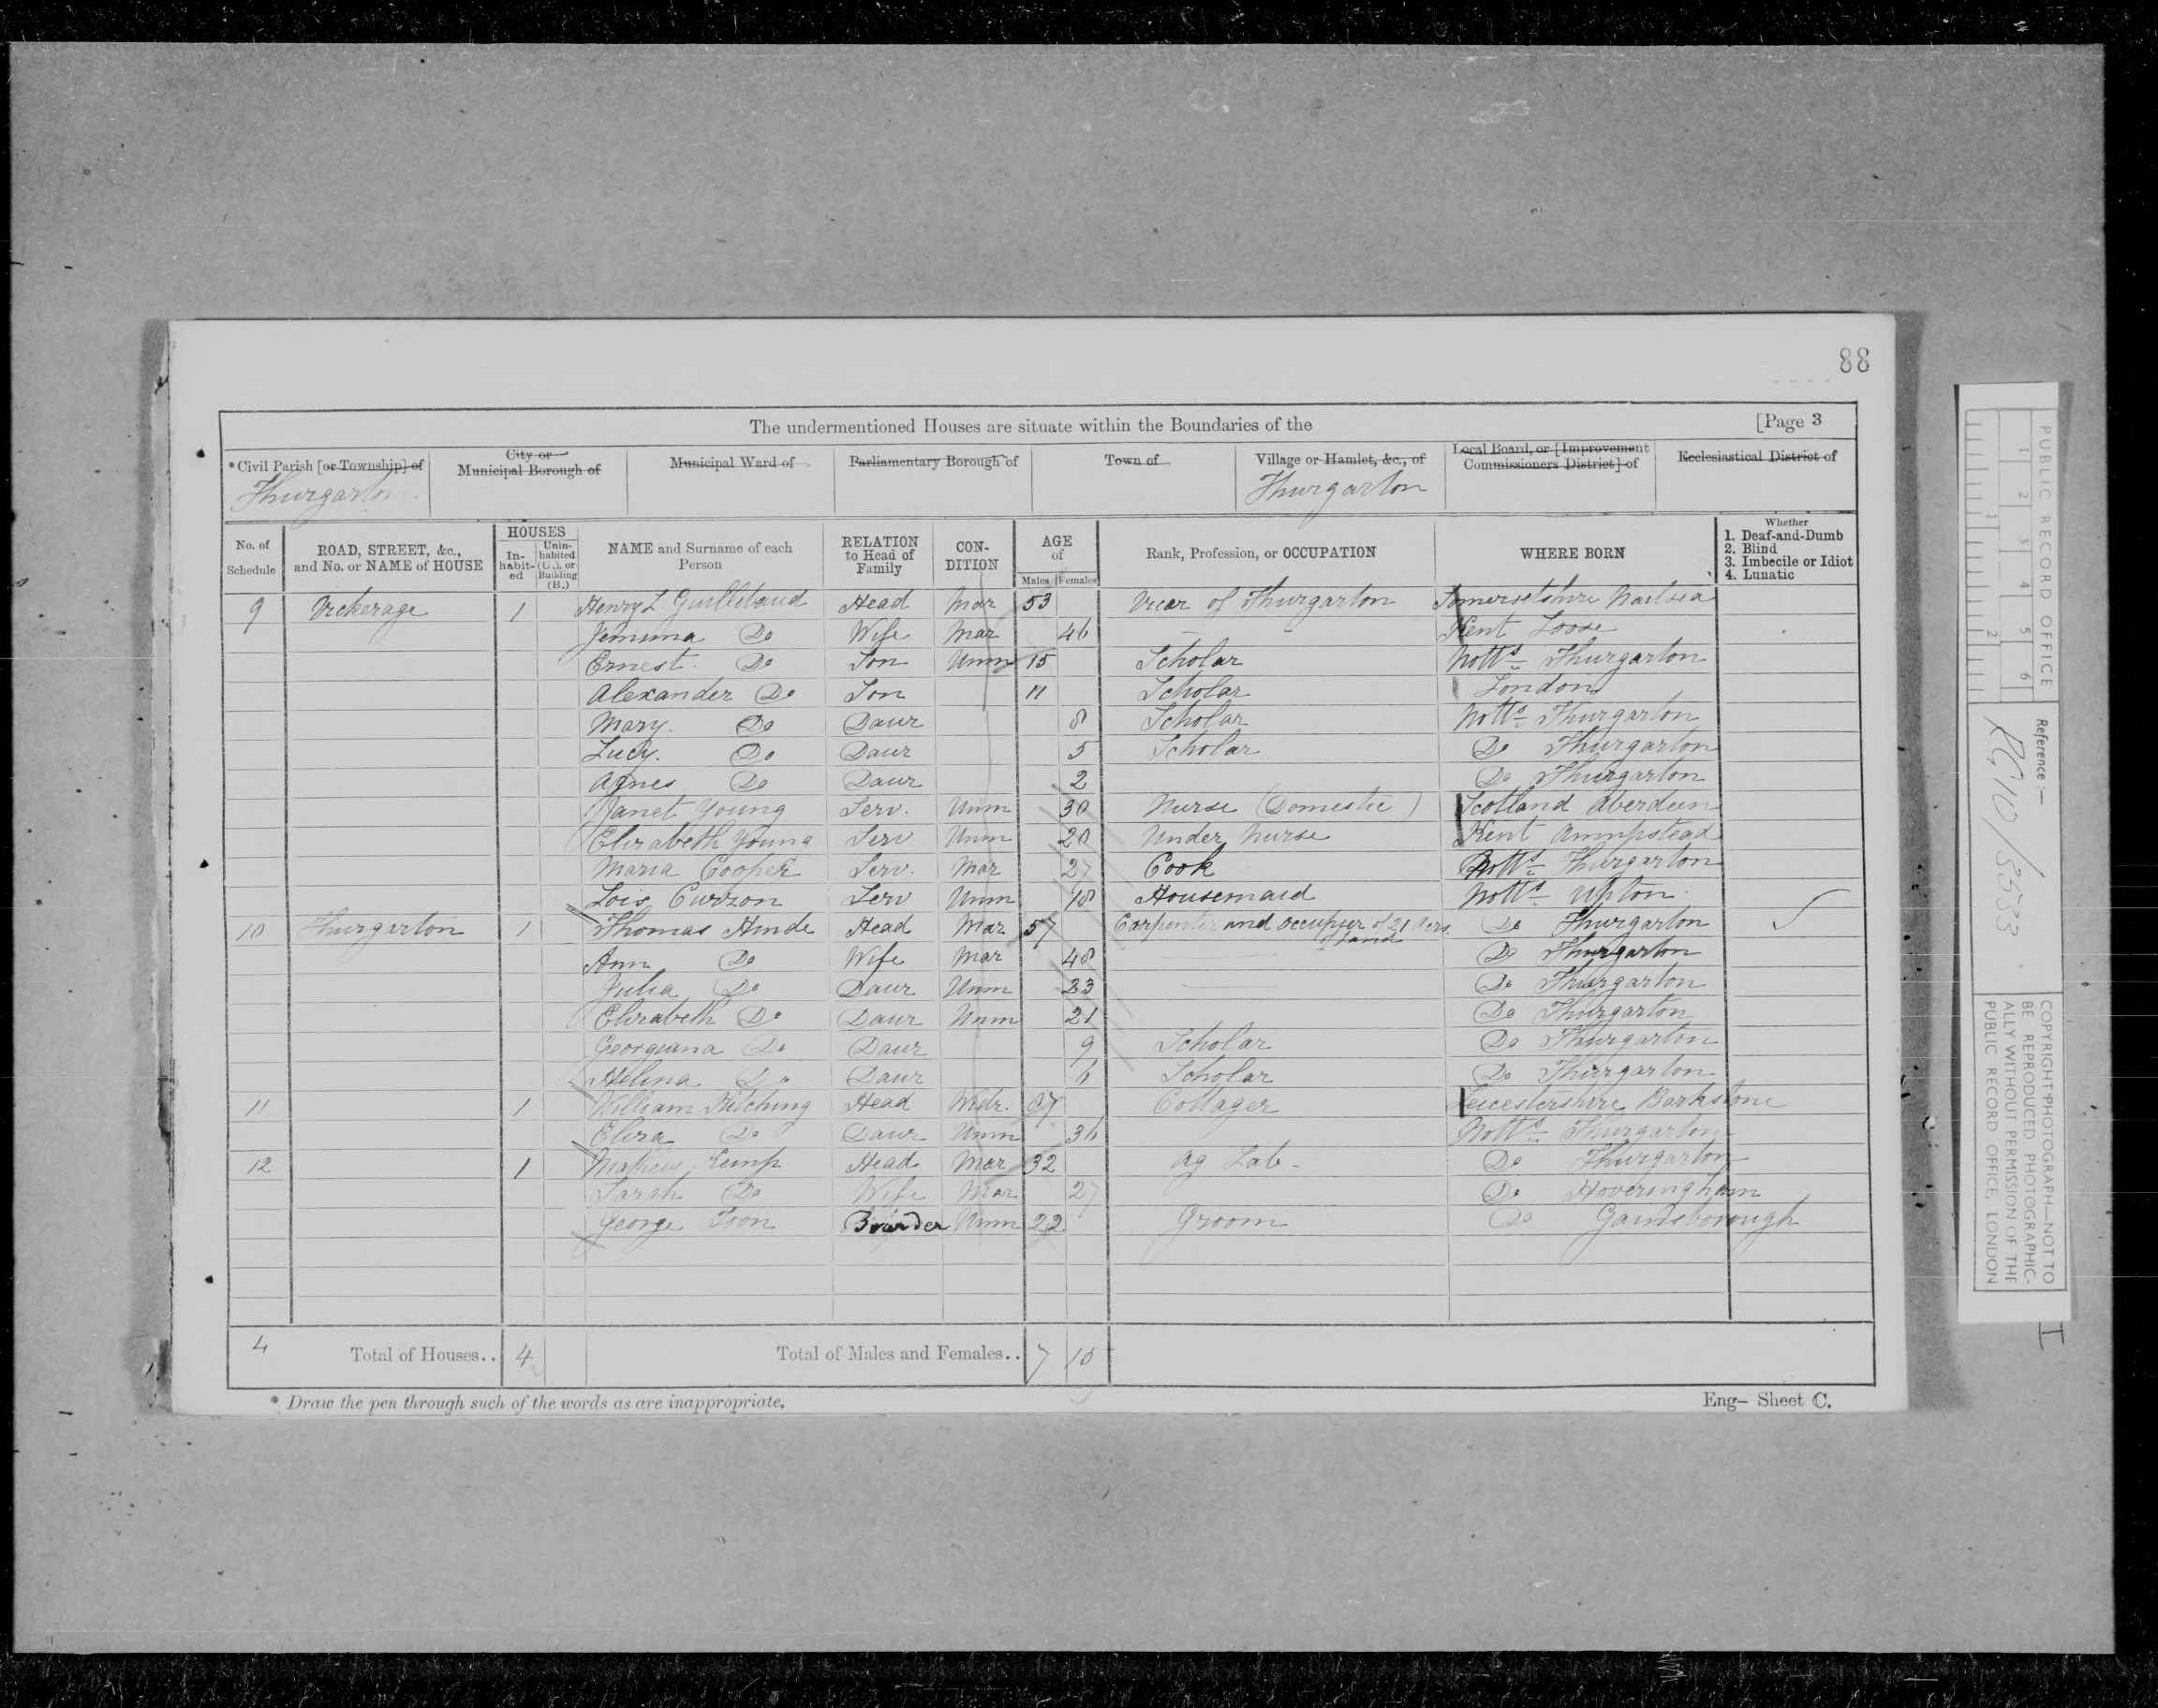 88
The undermentioned Houses are situate within the Boundaries of the [Page 3
*Civil Parish [or Township] of City or Municipal Borough of Municipal Ward of Parliamentary Borough of Town of Village or Hamlet, &c., of Local Board, or [Improvement Commissioners District] of Ecclesiastical District of
Thurgarton Thurgarton
No. of Schedule ROAD, STREET, &c., and No. or NAME of HOUSE HOUSES In-habit-ed Unin-habited (U.), or Building (B.) NAME and Surname of each Person RELATION to Head of Family CON-DITION AGE of Males Females Rank, Profession, or OCCUPATION WHERE BORN Whether 1. Deaf-and-Dumb 2. Blind 3. Imbecile or Idiot 4. Lunatic
9 Vickerage 1 Henry L. Guillebaud Head Mar 53 Vicar of Thurgarton Somersetshire Nailsea
Jemima Do Wife Mar 46 Kent Loose
Ernest Do Son Unm 15 Scholar Notts Thurgarton
Alexander Do Son 11 Scholar London
Mary Do Daur 8 Scholar Notts Thurgarton
Lucy Do Daur 5 Scholar Do Thurgarton
Agnes Do Daur 2 Do Thurgarton
Janet Young Serv. Unm 30 Nurse (Domestic) Scotland Aberdeen
Elizabeth Young Serv Unm 20 Under Nurse Kent
Maria Cooper Serv. Mar 27 Cook Notts Thurgarton
Lois Curzon Serv Unm 18 Housemaid Notts Upton
10 Thurgarton 1 Thomas Hinde Head Mar 57 Carpenter and occupier of 21 Acrs of land Do Thurgarton
Ann Do Wife Mar 48 Do Thurgarton
Julia Do Daur Unm 23 Do Thurgarton
Elizabeth Do Daur Unm 21 Do Thurgarton
Georgiana Do Daur 9 Scholar Do Thurgarton
Helina Do Daur 6 Scholar Do Thurgarton
11 1 William Kitching Head Widr. 67 Cottager Leicestershire Barkstone
Eliza Do Daur Unm 36 Notts Thurgarton
12 1 Mathew Kemp Head Mar 32 Ag Lab Do Thurgarton
Sarah Do Wife Mar 27 Do Hoveringham
George Toon Boarder Unm 22 Groom Do Gainsborough
4 Total of Houses.. 4 Total of Males and Females.. 7 15
* Draw the pen through such of the words as are inappropriate. Eng- Sheet C.
PUBLIC RECORD OFFICE
1 2 3 4 5 6
1 2
Reference :-
RG 10/3533
COPYRIGHT PHOTOGRAPH—NOT TO
BE REPRODUCED PHOTOGRAPHIC-
ALLY WITHOUT PERMISSION OF THE
PUBLIC RECORD OFFICE, LONDON